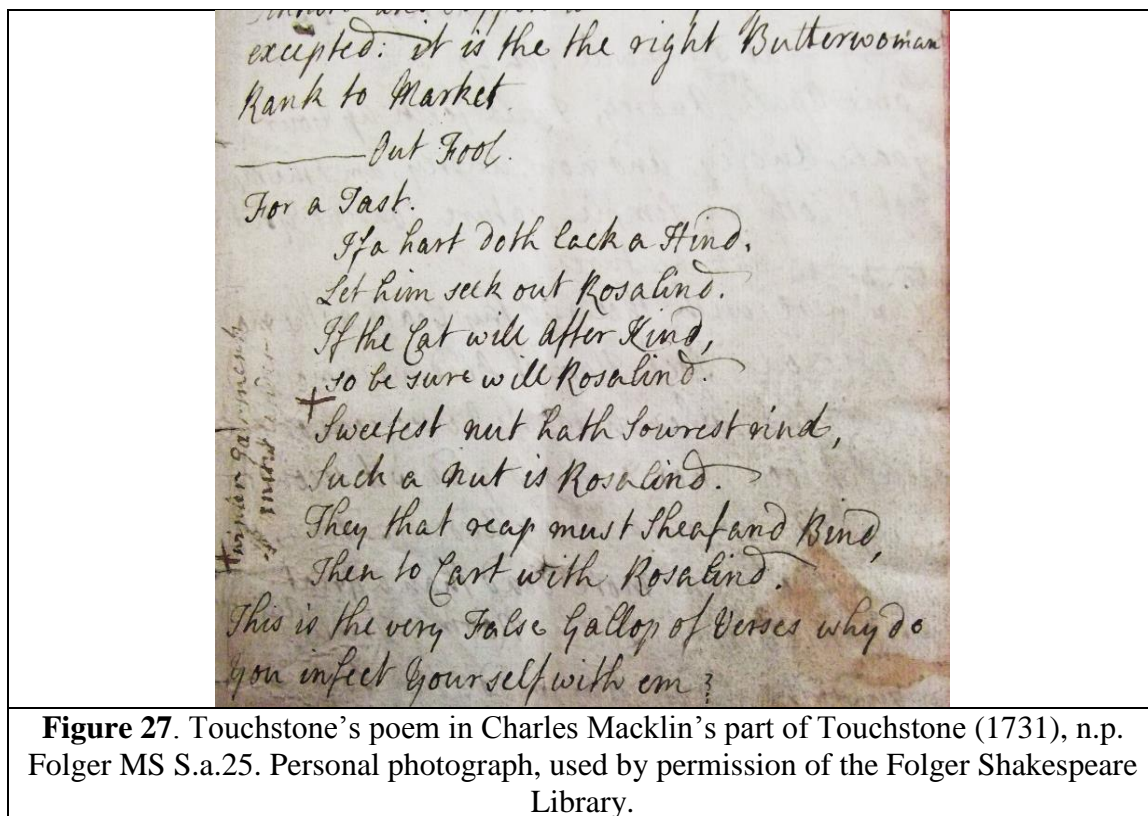 excepted: it is the the right Butterwoman
Rank to Market
Out Fool.
For a Tast.
If a hart doth lack a Hind,
Let him seek out Rosalind.
If the Cat will after Kind,
so be sure will Rosalind.
+
Sweetest nut hath Sowrest rind,
Such a Nut is Rosalind.
They that reap must Sheaf and Bind,
Then to Cart with Rosalind.
This is the very False Gallop of Verses why do
you infect yourself with em?
Figure 27. Touchstone’s poem in Charles Macklin’s part of Touchstone (1731), n.p.
Folger MS S.a.25. Personal photograph, used by permission of the Folger Shakespeare
Library.